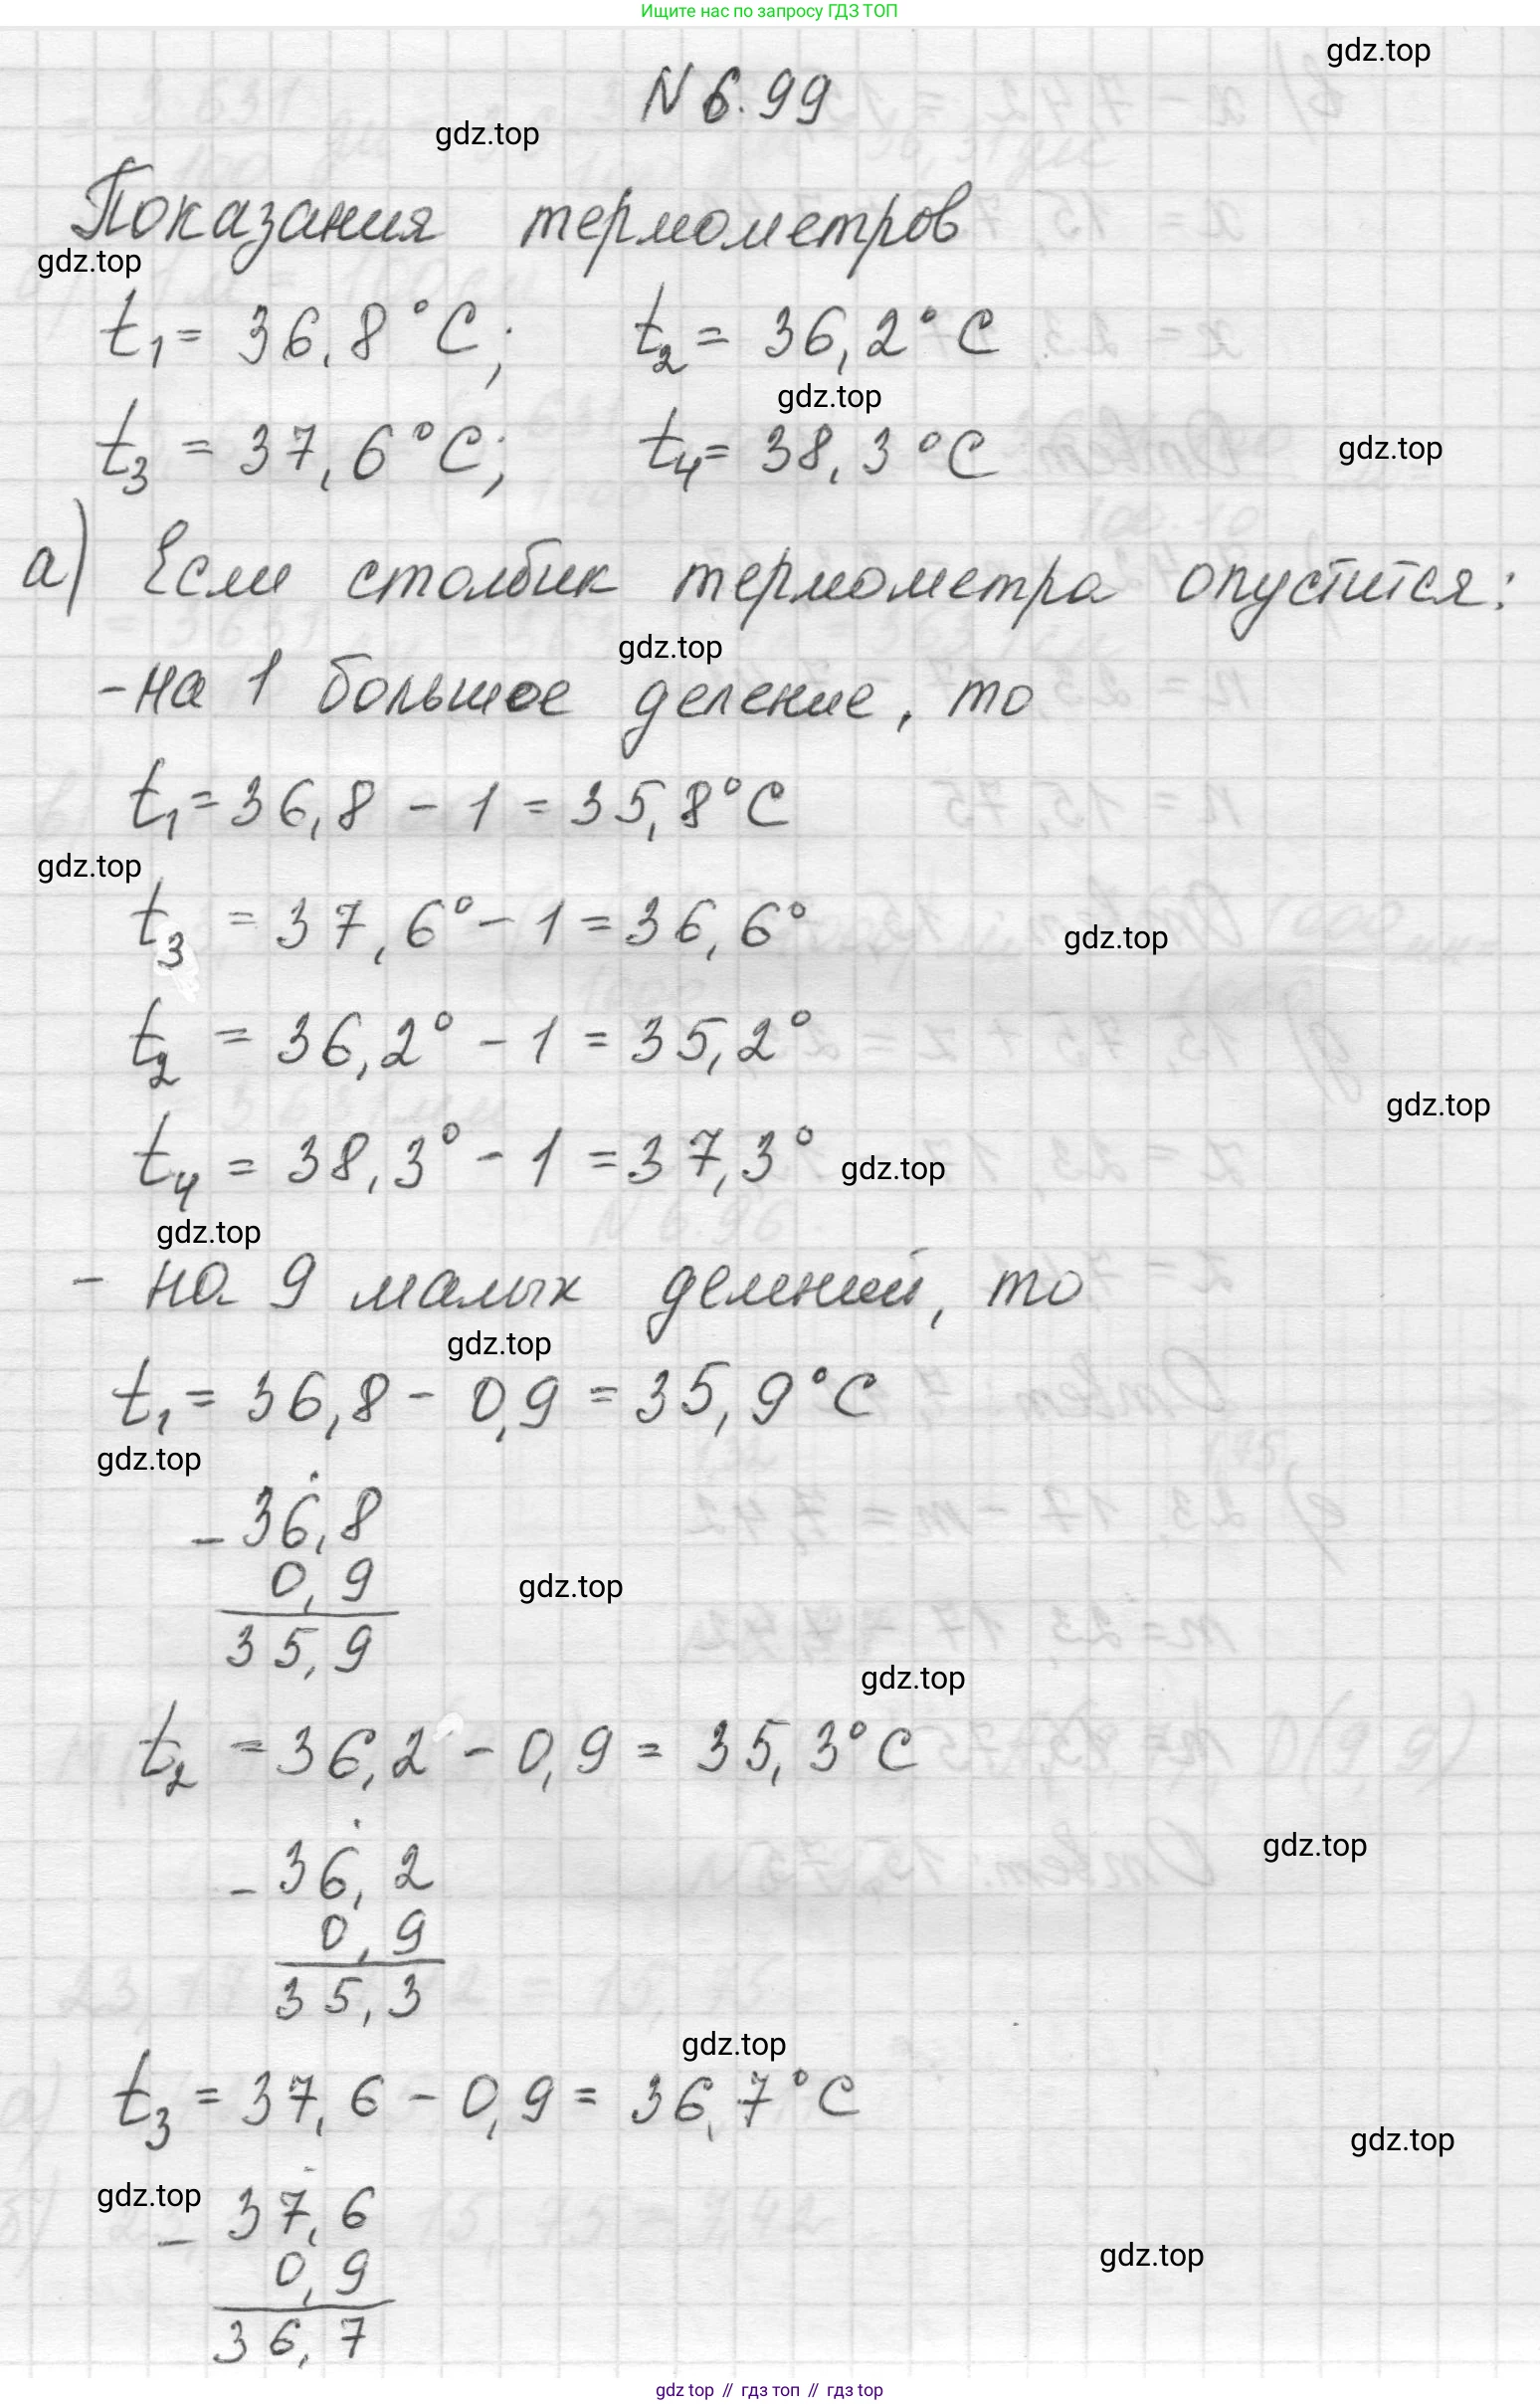 Ищите нас по запросу ГДЗ ТОП
gdz.top
N 6.99
gdz.top
Показания термометров
gdz.top
t₁ = 36,8 °C; t₂ = 36,2° C
gdz.top
t₃ = 37,6 °C; t₄ = 38,3 °C
gdz.top
а) Если столбик термометра опустится:
gdz.top
- на 1 большое деление, то
t₁ = 36,8 - 1 = 35,8°C
gdz.top
t₃ = 37,6° - 1 = 36,6°
gdz.top
t₂ = 36,2° - 1 = 35,2°
gdz.top
t₄ = 38,3° - 1 = 37,3°
gdz.top
gdz.top
- на 9 малых делений, то
gdz.top
t₁ = 36,8 - 0,9 = 35,9°C
gdz.top
- 36,8
0,9
gdz.top
35,9
gdz.top
t₂ = 36,2 - 0,9 = 35,3°C
gdz.top
- 36,2
0,9
35,3
gdz.top
t₃ = 37,6 - 0,9 = 36,7°C
gdz.top
gdz.top
- 37,6
gdz.top
0,9
36,7
gdz top // гдз топ // гдз top